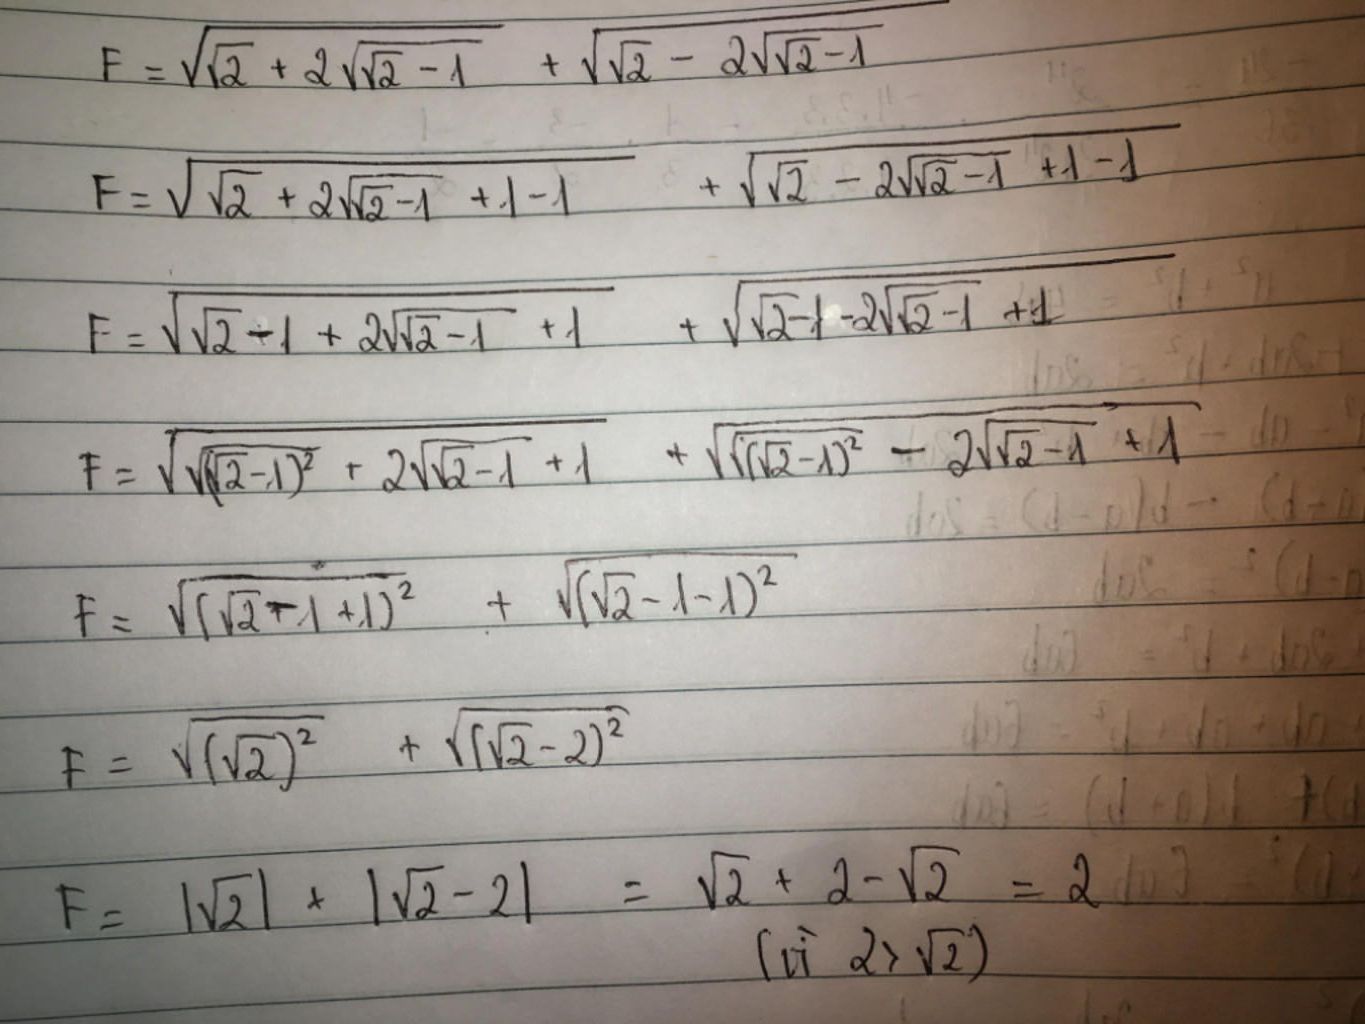 F = √(√2 + 2√(√2 - 1)) + √(√2 - 2√(√2 - 1))
F = √(√2 + 2√(√2 - 1) + 1 - 1) + √(√2 - 2√(√2 - 1) + 1 - 1)
F = √(√2 - 1 + 2√(√2 - 1) + 1) + √(√2 - 1 - 2√(√2 - 1) + 1)
F = √(√(√2 - 1)² + 2√(√2 - 1) + 1) + √(√(√2 - 1)² - 2√(√2 - 1) + 1)
F = √(√2 - 1 + 1)² + √(√2 - 1 - 1)²
F = √(√2)² + √(√2 - 2)²
F = |√2| + |√2 - 2| = √2 + 2 - √2 = 2
(vì 2 > √2)